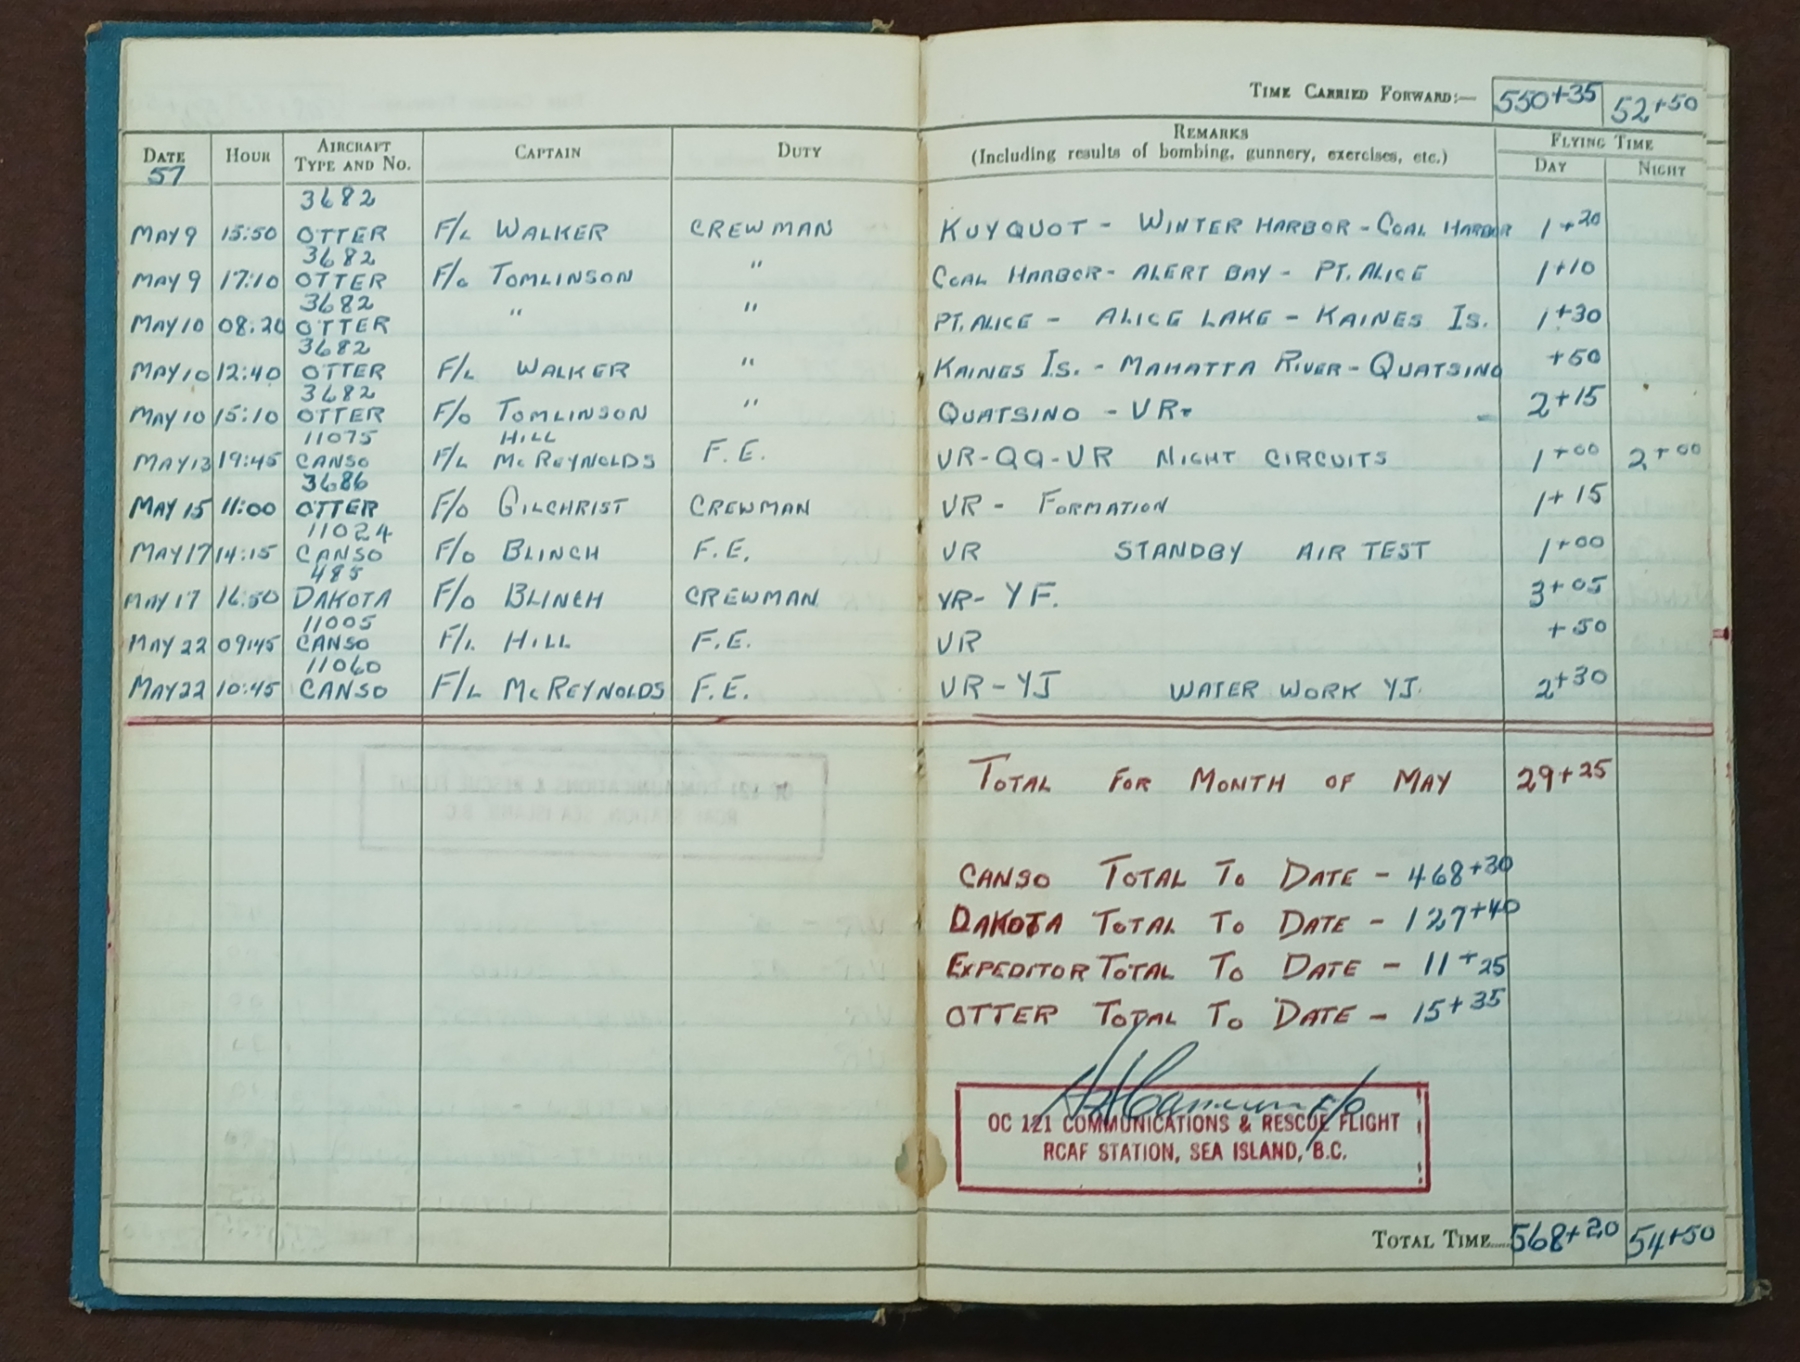 TIME CARRIED FORWARD:— 550+35 52+50
DATE HOUR AIRCRAFT TYPE AND NO. CAPTAIN DUTY REMARKS (Including results of bombing, gunnery, exercises, etc.) FLYING TIME DAY NIGHT
57
3682
MAY 9 15:50 OTTER F/L WALKER CREWMAN KUYQUOT - WINTER HARBOR - COAL HARBOR 1+20
3682
MAY 9 17:10 OTTER F/O TOMLINSON " COAL HARBOR - ALERT BAY - PT. ALICE 1+10
3682
MAY 10 08:20 OTTER " " PT. ALICE - ALICE LAKE - KAINES IS. 1+30
3682
MAY 10 12:40 OTTER F/L WALKER " KAINES IS. - MAHATTA RIVER - QUATSINO +50
3682
MAY 10 15:10 OTTER F/O TOMLINSON " QUATSINO - VR. 2+15
11075 HILL
MAY 13 19:45 CANSO F/L McREYNOLDS F.E. VR-QQ-VR NIGHT CIRCUITS 1+00 2+00
3686
MAY 15 11:00 OTTER F/O GILCHRIST CREWMAN VR - FORMATION 1+15
11024
MAY 17 14:15 CANSO F/O BLINCH F.E. VR STANDBY AIR TEST 1+00
485
MAY 17 16:50 DAKOTA F/O BLINCH CREWMAN VR- YF. 3+05
11005
MAY 22 09:45 CANSO F/L HILL F.E. VR +50
11060
MAY 22 10:45 CANSO F/L McREYNOLDS F.E. VR-YJ WATER WORK YJ. 2+30
TOTAL FOR MONTH OF MAY 29+25
CANSO TOTAL TO DATE - 468+30
DAKOTA TOTAL TO DATE - 127+40
EXPEDITOR TOTAL TO DATE - 11+25
OTTER TOTAL TO DATE - 15+35
OC 121 COMMUNICATIONS & RESCUE FLIGHT
RCAF STATION, SEA ISLAND, B.C.
TOTAL TIME.... 568+20 54+50